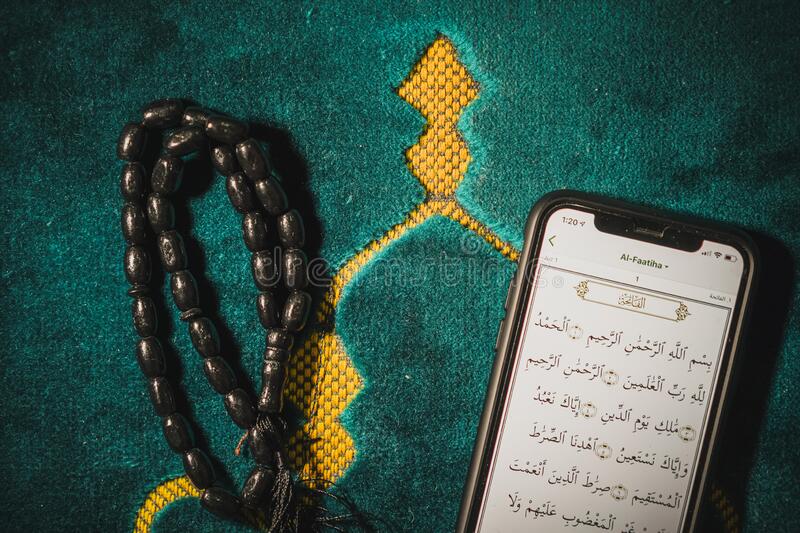 1:20
Al-Faatiha
Juz 1
1
1. الفاتحة
الفَاتِحَة
بِسْمِ ٱللَّهِ ٱلرَّحْمَٰنِ ٱلرَّحِيمِ ١ ٱلْحَمْدُ
لِلَّهِ رَبِّ ٱلْعَٰلَمِينَ ٢ ٱلرَّحْمَٰنِ ٱلرَّحِيمِ
٣ مَٰلِكِ يَوْمِ ٱلدِّينِ ٤ إِيَّاكَ نَعْبُدُ
وَإِيَّاكَ نَسْتَعِينُ ٥ ٱهْدِنَا ٱلصِّرَٰطَ
ٱلْمُسْتَقِيمَ ٦ صِرَٰطَ ٱلَّذِينَ أَنْعَمْتَ
غَيْرِ ٱلْمَغْضُوبِ عَلَيْهِمْ وَلَا
dreamstime